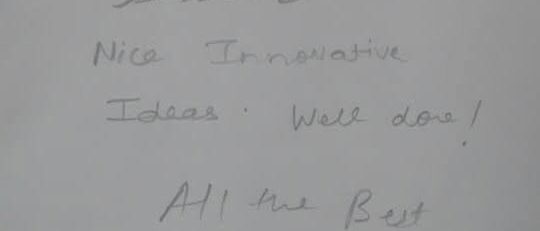 Nice Innovative
Ideas. Well done!
All the Best